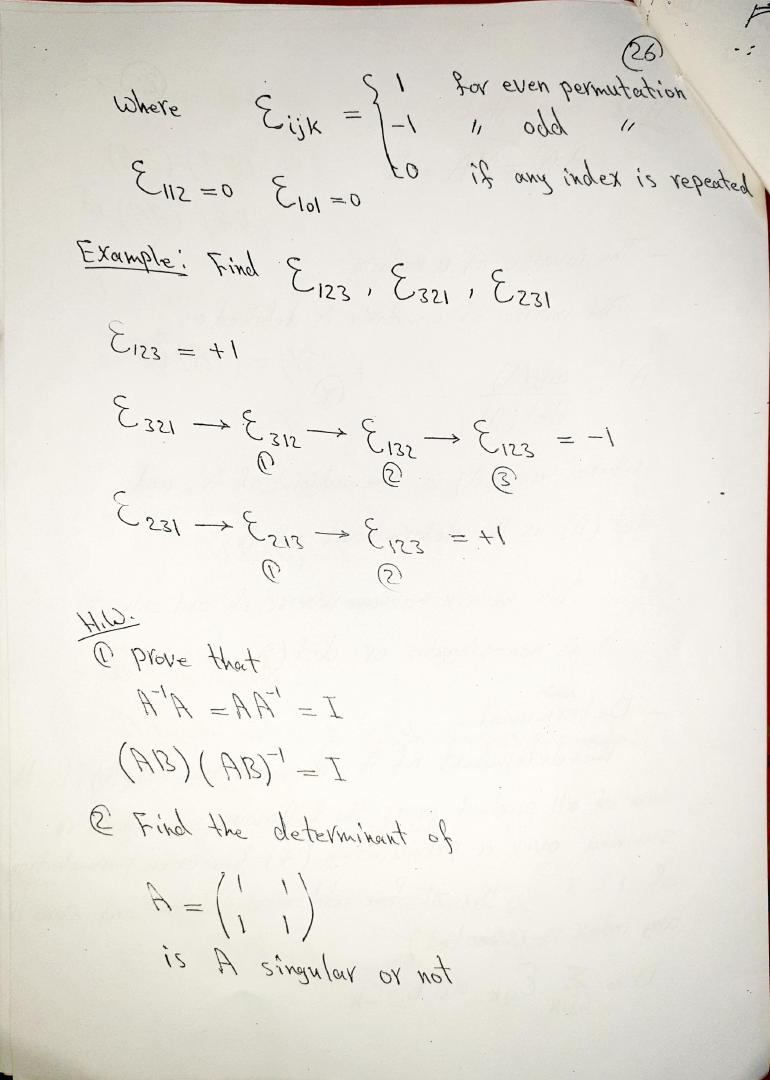 26
where εijk = { 1 for even permutation
-1 〃 odd 〃
0 if any index is repeated
ε112 = 0 ε101 = 0
Example: Find ε123 , ε321 , ε231
ε123 = +1
ε321 → ε312 → ε132 → ε123 = -1
① ② ③
ε231 → ε213 → ε123 = +1
① ②
H.W.
① prove that
A⁻¹A = AA⁻¹ = I
(AB)(AB)⁻¹ = I
② Find the determinant of
A = ( 1 1
1 1 )
is A singular or not